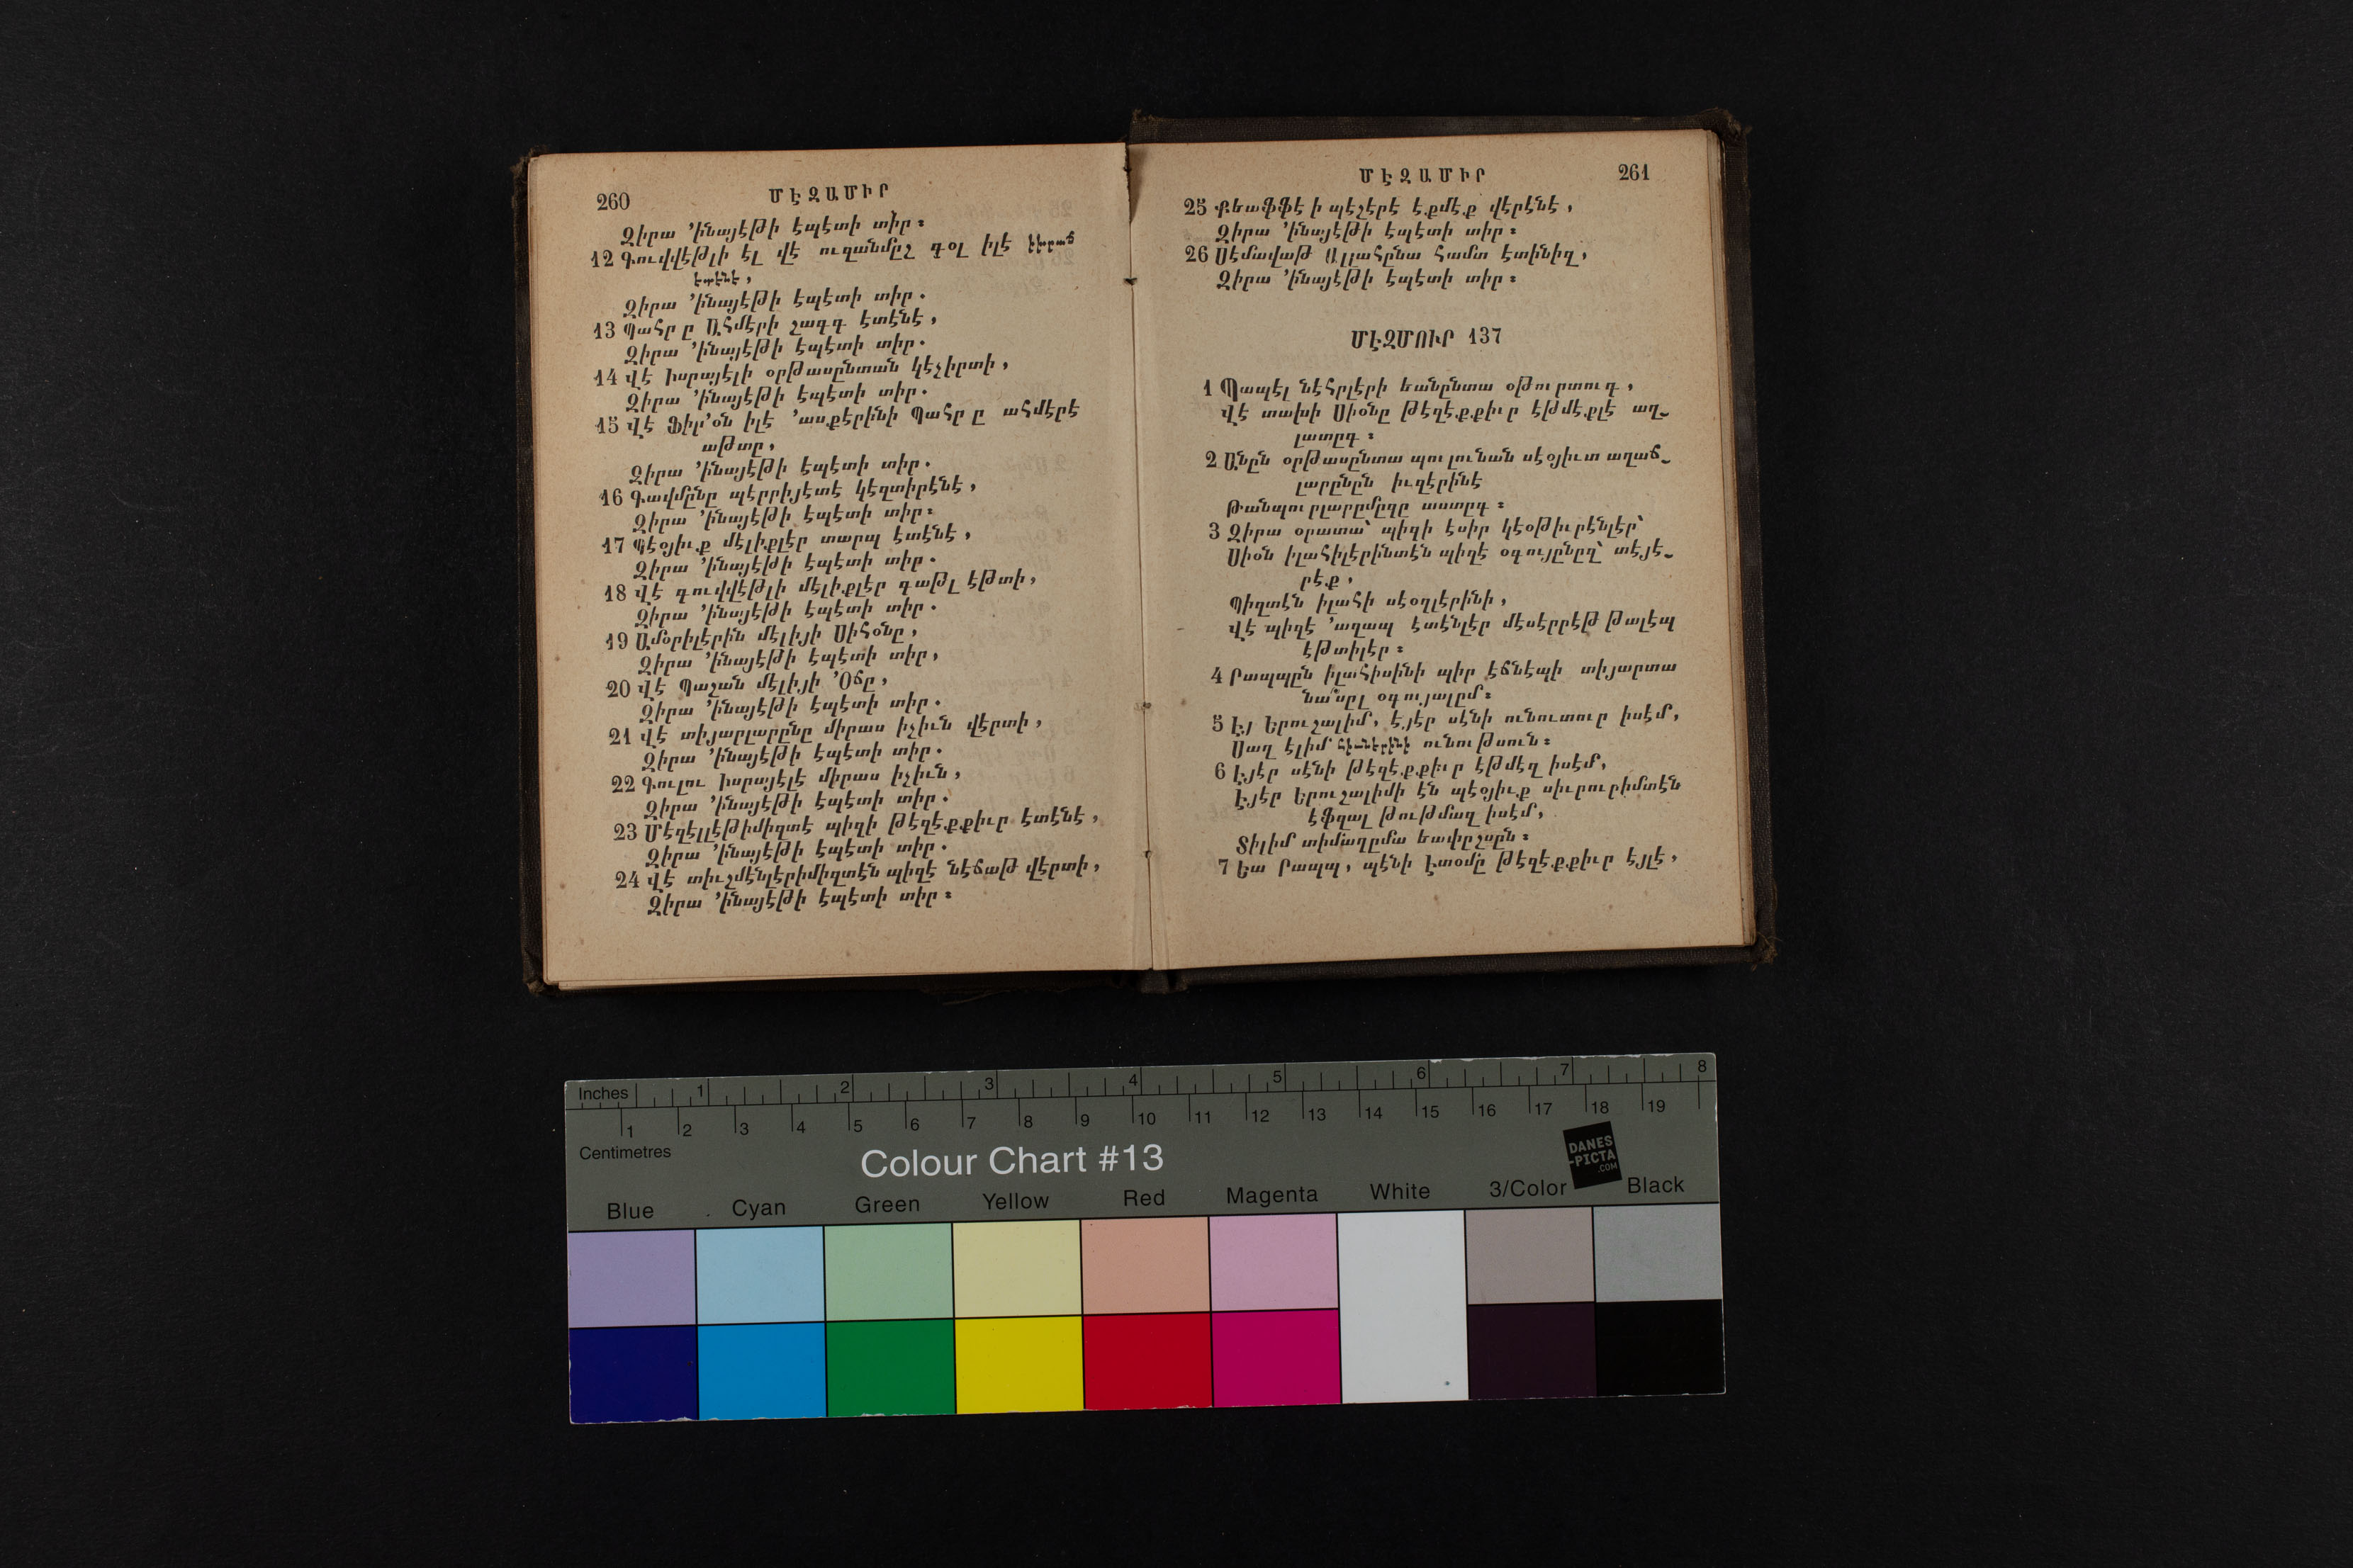 260 ՄԷԶԱՄԻՐ
Զիրա ՚ինայէթի էպէտի տիր։
12 Գուվվէթլի էլ վէ ուզանմըշ գօլ իլէ
էտէնէ,
Զիրա ՚ինայէթի էպէտի տիր.
13 Պահր ը Ահմէրի շագգ էտէնէ,
Զիրա ՚ինայէթի էպէտի տիր.
14 Վէ Իսրայէլի օրթասընտան կէչիրտի,
Զիրա ՚ինայէթի էպէտի տիր.
15 Վէ Ֆիր՚օն իլէ ՚ասքէրինի Պահր ը ահմէրէ
աթտը,
Զիրա ՚ինայէթի էպէտի տիր.
16 Գավմընը պէրրիյէտէ կէզտիրէնէ,
Զիրա ՚ինայէթի էպէտի տիր։
17 Պէօյիւք մէլիքլէր տարպ էտէնէ,
Զիրա ՚ինայէթի էպէտի տիր.
18 Վէ գուվվէթլի մէլիքլէր գաթլ էթտի,
Զիրա ՚ինայէթի էպէտի տիր.
19 Ամօրիլէրին մէլիյի Սիհօնը,
Զիրա ՚ինայէթի էպէտի տիր,
20 Վէ Պաշան մէլիյի ՚Օճը,
Զիրա ՚ինայէթի էպէտի տիր.
21 Վէ տիյարլարընը միրաս իչիւն վէրտի,
Զիրա ՚ինայէթի էպէտի տիր.
22 Գուլու Իսրայէլէ միրաս իչիւն,
Զիրա ՚ինայէթի էպէտի տիր.
23 Մէզէլլէթիմիզտէ պիզի թէզէքքիւր էտէնէ,
Զիրա ՚ինայէթի էպէտի տիր.
24 Վէ տիւշմէնլէրիմիզտէն պիզէ նէճաթ վէրտի,
Զիրա ՚ինայէթի էպէտի տիր։
ՄԷԶԱՄԻՐ 261
25 Քեաֆֆէ ի պէշէրէ էքմէք վէրէնէ,
Զիրա ՚ինայէթի էպէտի տիր։
26 Սէմավաթ Ալլահընա համտ էտինիզ,
Զիրա ՚ինայէթի էպէտի տիր։
ՄԷԶՄՈՒՐ 137
1 Պապէլ նէհրլէրի եանընտա օթուրտուգ,
Վէ տախի Սիօնը թէզէքքիւր էթմէքլէ աղ֊
լատըգ։
2 Անըն օրթասընտա պուլունան սէօյիւտ աղաճ֊
լարընըն իւզէրինէ
Թանպուրլարըմըզը աստըգ։
3 Զիրա օրատա՝ պիզի էսիր կէօթիւրէնլէր՝
Սիօն իլահիլէրինտէն պիզէ օգույընըզ՝ տէյէ֊
րէք,
Պիզտէն իլահի սէօզլէրինի,
Վէ պիզէ ՚ազապ էտէնլէր մէսէրրէթ թալէպ
էթտիլէր։
4 Րապպըն իլահիսինի պիր էճնէպի տիյարտա
նա՞սըլ օգույալըմ։
5 Էյ Երուշալիմ, էյէր սէնի ունուտուր իսէմ,
Սաղ էլիմ հիւնէրինի ունութսուն։
6 Էյէր սէնի թէզէքքիւր էթմէզ իսէմ,
Էյէր Երուշալիմի էն պէօյիւք սիւրուրիմտէն
էֆզալ թութմազ իսէմ,
Տիլիմ տիմաղըմա եափըշսըն։
7 Եա Րապպ, պէնի Էտօմը թէզէքքիւր էյլէ,
Inches 1 2 3 4 5 6 7 8
1 2 3 4 5 6 7 8 9 10 11 12 13 14 15 16 17 18 19
Centimetres
Colour Chart #13
DANES
-PICTA
.COM
Blue Cyan Green Yellow Red Magenta White 3/Color Black